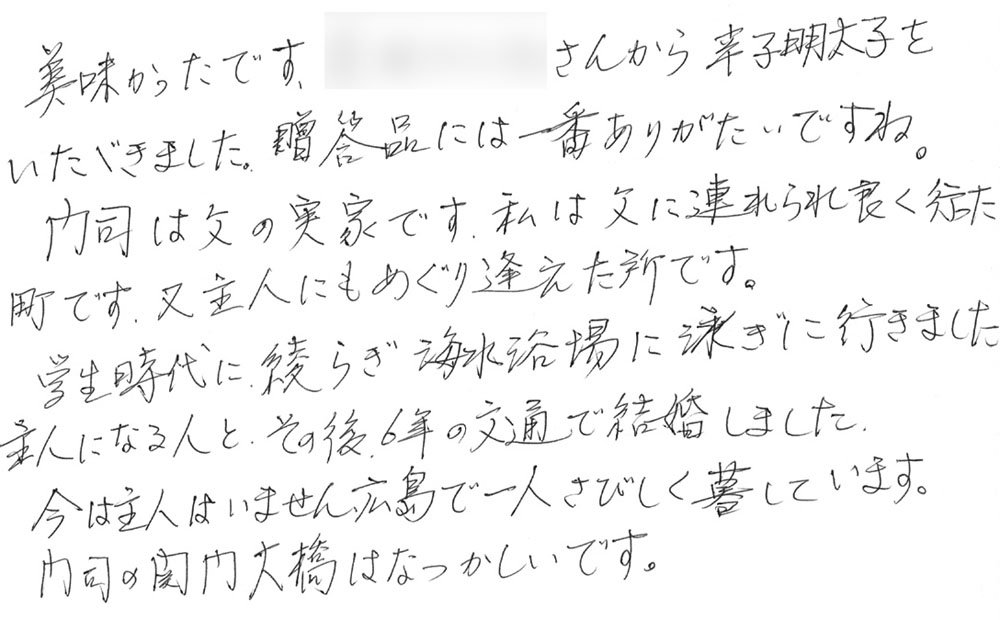 美味かったです、さんから辛子明太子を
いただきました。贈答品には一番ありがたいですね。
門司は父の実家です。私は父に連れられ良く行た
町です。又主人にもめぐり逢えた所です。
学生時代に、綾らぎ海水浴場に泳ぎに行きました
主人になる人と、その後、6年の交通で結婚しました。
今は主人はいません、広島で一人さびしく暮しています。
門司の関門大橋はなつかしいです。